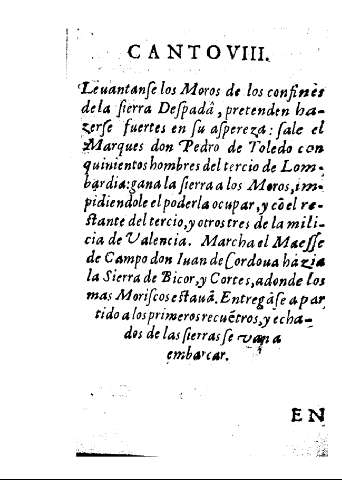 CANTO VIII.
Leuantanſe los Moros de los confines
de la ſierra Deſpadã, pretenden ha-
zerſe fuertes en ſu aſpereza: ſale el
Marques don Pedro de Toledo con
quinientos hombres del tercio de Lom-
bardia: gana la ſierra a los Moros, im-
pidiendole el poderla ocupar, y cõ el re-
ſtante del tercio, y otros tres de la mili-
cia de Valencia. Marcha el Maeſſe
de Campo don Iuan de Cordoua házia
la Sierra de Bicor, y Cortes, adonde los
mas Moriſcos eſtauã. Entregãſe a par
tido a los primeros recuẽtros, y echa-
dos de las ſierras ſe van a
embarcar.
EN